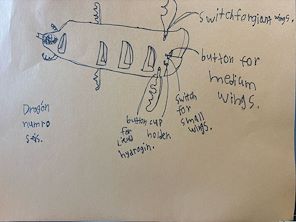 switch for giant wings.
button for
medium
wings.
switch
for
small
wings.
cup
holder
button
for
liquid
hydrogin.
Dragon
numro